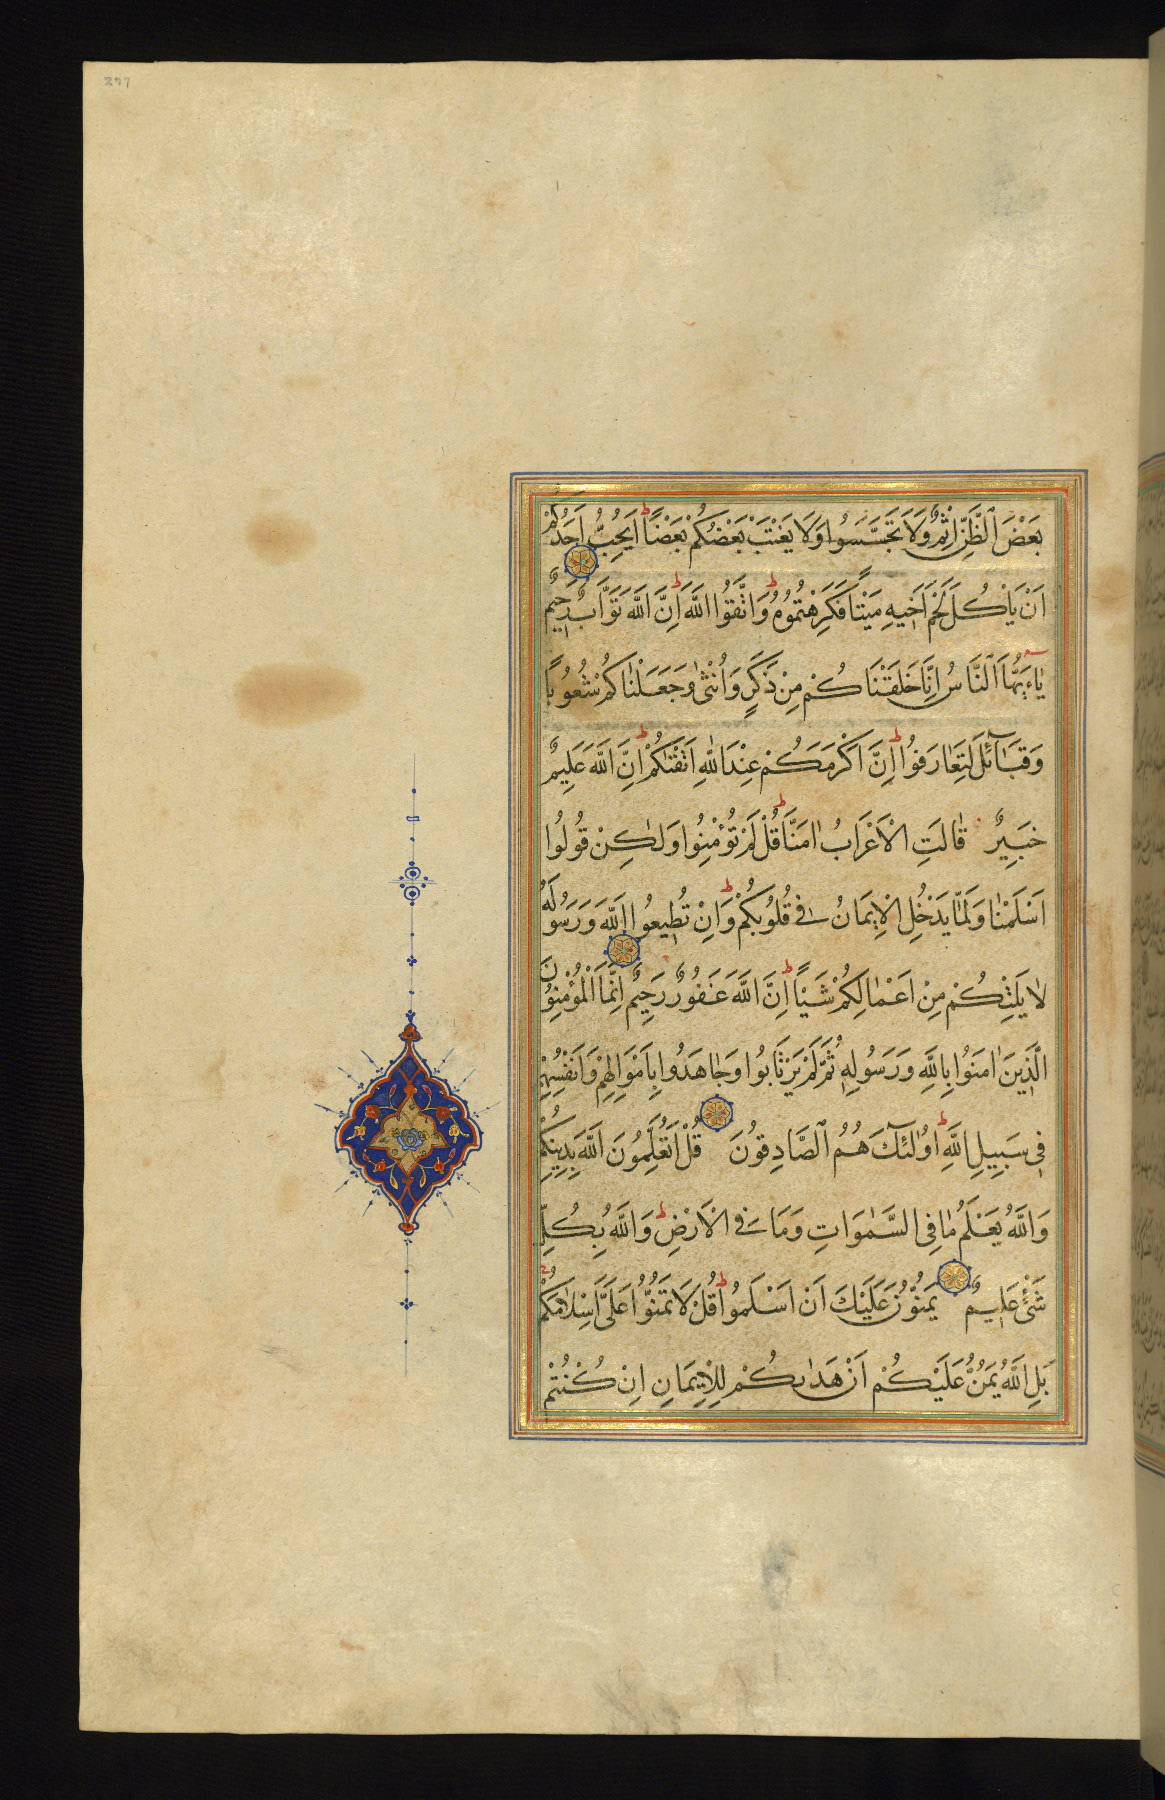 ٢٧٧
بَعْضَ الظَّنِّ اِثْمٌ وَلَا تَجَسَّسُوا وَلَا يَغْتَبْ بَعْضُكُمْ بَعْضًا ط اَيُحِبُّ اَحَدُكُمْ
اَنْ يَاْكُلَ لَحْمَ اَخِيهِ مَيْتًا فَكَرِهْتُمُوهُ ط وَاتَّقُوا اللّٰهَ ط اِنَّ اللّٰهَ تَوَّابٌ رَحِيمٌ
يٰاءَيُّهَا النَّاسُ اِنَّا خَلَقْنَاكُمْ مِنْ ذَكَرٍ وَاُنْثٰى وَجَعَلْنَاكُمْ شُعُوبًا
وَقَبَآئِلَ لِتَعَارَفُوا ط اِنَّ اَكْرَمَكُمْ عِنْدَ اللّٰهِ اَتْقٰىكُمْ ط اِنَّ اللّٰهَ عَلِيمٌ
خَبِيرٌ قَالَتِ الْاَعْرَابُ اٰمَنَّا ط قُلْ لَمْ تُؤْمِنُوا وَلٰكِنْ قُولُوا
اَسْلَمْنَا وَلَمَّا يَدْخُلِ الْاِيمَانُ فِي قُلُوبِكُمْ ط وَاِنْ تُطِيعُوا اللّٰهَ وَرَسُولَهُ
لَا يَلِتْكُمْ مِنْ اَعْمَالِكُمْ شَيْئًا ط اِنَّ اللّٰهَ غَفُورٌ رَحِيمٌ اِنَّمَا الْمُؤْمِنُونَ
الَّذِينَ اٰمَنُوا بِاللّٰهِ وَرَسُولِهِ ثُمَّ لَمْ يَرْتَابُوا وَجَاهَدُوا بِاَمْوَالِهِمْ وَاَنْفُسِهِمْ
فِي سَبِيلِ اللّٰهِ ط اُولٰئِكَ هُمُ الصَّادِقُونَ قُلْ اَتُعَلِّمُونَ اللّٰهَ بِدِينِكُمْ
وَاللّٰهُ يَعْلَمُ مَا فِي السَّمٰوَاتِ وَمَا فِي الْاَرْضِ ط وَاللّٰهُ بِكُلِّ
شَيْءٍ عَلِيمٌ يَمُنُّونَ عَلَيْكَ اَنْ اَسْلَمُوا ط قُلْ لَا تَمُنُّوا عَلَيَّ اِسْلَامَكُمْ
بَلِ اللّٰهُ يَمُنُّ عَلَيْكُمْ اَنْ هَدٰىكُمْ لِلْاِيمَانِ اِنْ كُنْتُمْ